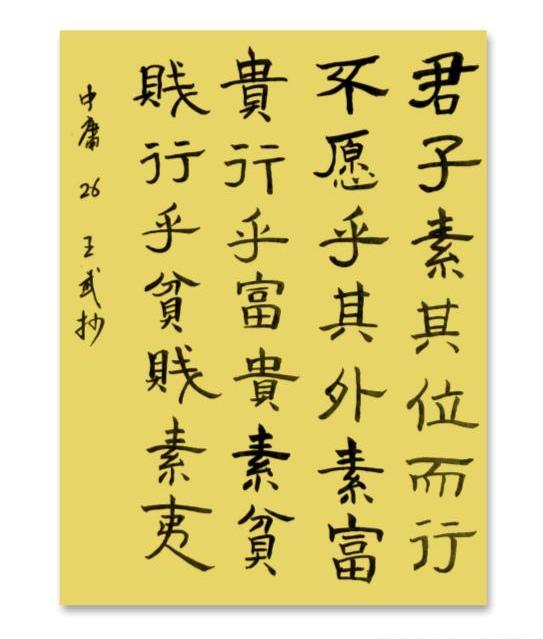 君子素其位而行
不愿乎其外素富
貴行乎富貴素貧
賤行乎貧賤素夷
中庸 26 王武抄